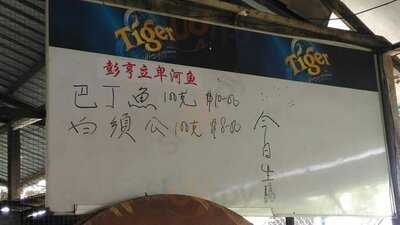 Tiger
Tiger
彭亨立卑河鱼
巴丁魚 100克 $10-00
白須公 100克 $8-00
今日生